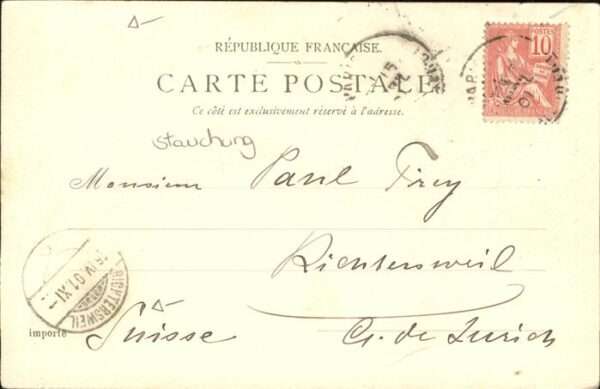 RÉPUBLIQUE FRANÇAISE.
10
POSTES
CARTE POSTALE
Ce côté est exclusivement réservé à l'adresse.
stauchung
Monsieur Paul Frey
Richtersweil
RICHTERSWEIL
IV.01.XI
importé
Suisse Ct. de Zurich